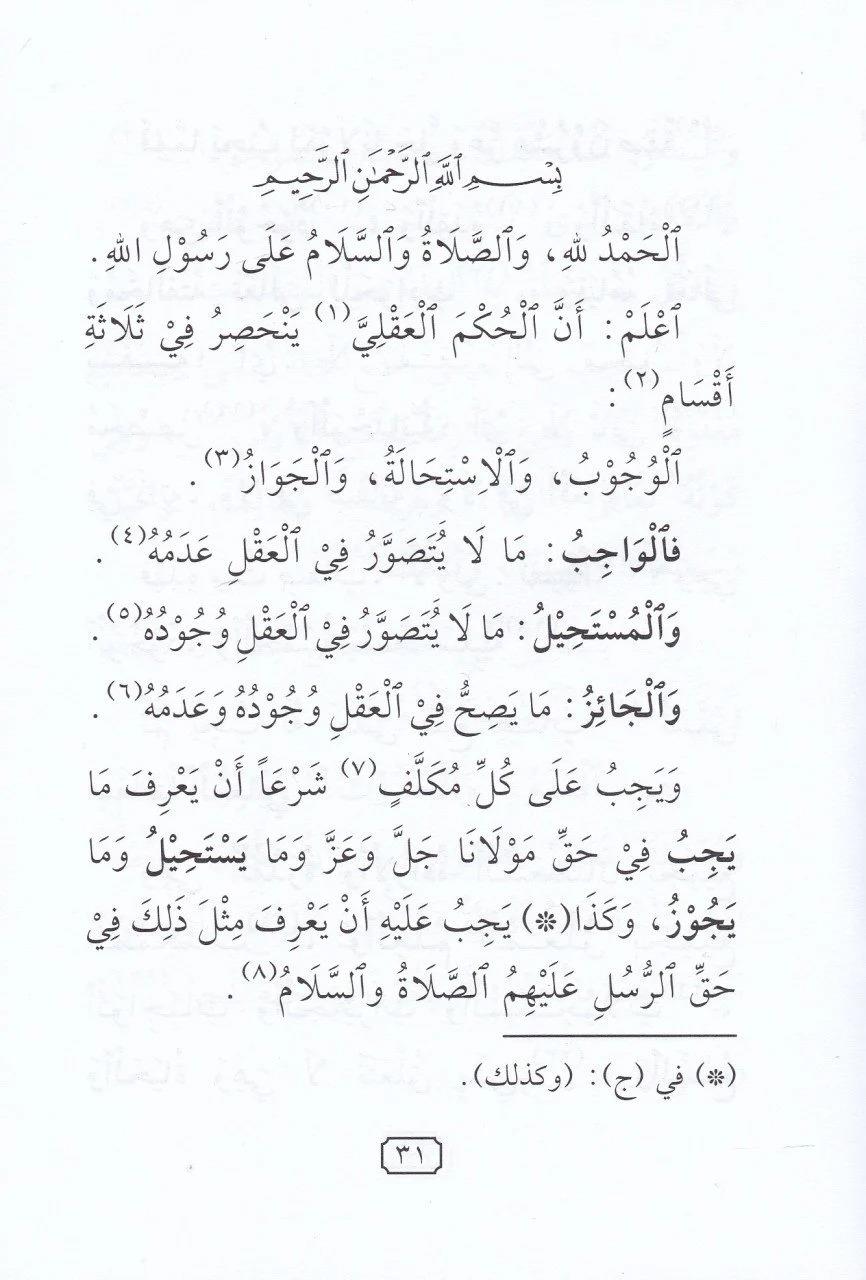 بِسْمِ ٱللَّهِ ٱلرَّحْمَٰنِ ٱلرَّحِيمِ
ٱلْحَمْدُ للهِ، وَٱلصَّلَاةُ وَٱلسَّلَامُ عَلَى رَسُوْلِ اللهِ.
ٱعْلَمْ: أَنَّ ٱلْحُكْمَ ٱلْعَقْلِيَّ(١) يَنْحَصِرُ فِيْ ثَلَاثَةِ
أَقْسَامٍ(٢):
ٱلْوُجُوْبُ، وَٱلْاِسْتِحَالَةُ، وَٱلْجَوَازُ(٣).
فَٱلْوَاجِبُ: مَا لَا يُتَصَوَّرُ فِيْ ٱلْعَقْلِ عَدَمُهُ(٤).
وَٱلْمُسْتَحِيْلُ: مَا لَا يُتَصَوَّرُ فِيْ ٱلْعَقْلِ وُجُوْدُهُ(٥).
وَٱلْجَائِزُ: مَا يَصِحُّ فِيْ ٱلْعَقْلِ وُجُوْدُهُ وَعَدَمُهُ(٦).
وَيَجِبُ عَلَى كُلِّ مُكَلَّفٍ(٧) شَرْعَاً أَنْ يَعْرِفَ مَا
يَجِبُ فِيْ حَقِّ مَوْلَانَا جَلَّ وَعَزَّ وَمَا يَسْتَحِيْلُ وَمَا
يَجُوْزُ، وَكَذَا(*) يَجِبُ عَلَيْهِ أَنْ يَعْرِفَ مِثْلَ ذَلِكَ فِيْ
حَقِّ ٱلرُّسُلِ عَلَيْهِمُ ٱلصَّلَاةُ وٱلسَّلَامُ(٨).
(*) في (ج): (وكذلك).
٣١